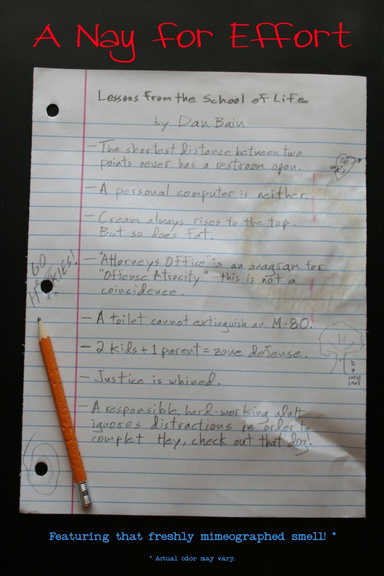 A Nay for Effort
Lessons from the School of Life
by Dan Bain
- The shortest distance between two
points never has a restroom open.
- A personal computer is neither.
- Cream always rises to the top.
But so does fat.
- "Attorneys Office" is an anagram for
"Offense Atrocity." This is not a
coincidence.
GO
- A toilet cannot extinguish an M-80.
- 2 kids + 1 parent = zone defense.
- Justice is whined.
- A responsible, hard-working adult
ignores distractions in order to
complet Hey, check out that dog!
Featuring that freshly mimeographed smell! *
* Actual odor may vary.